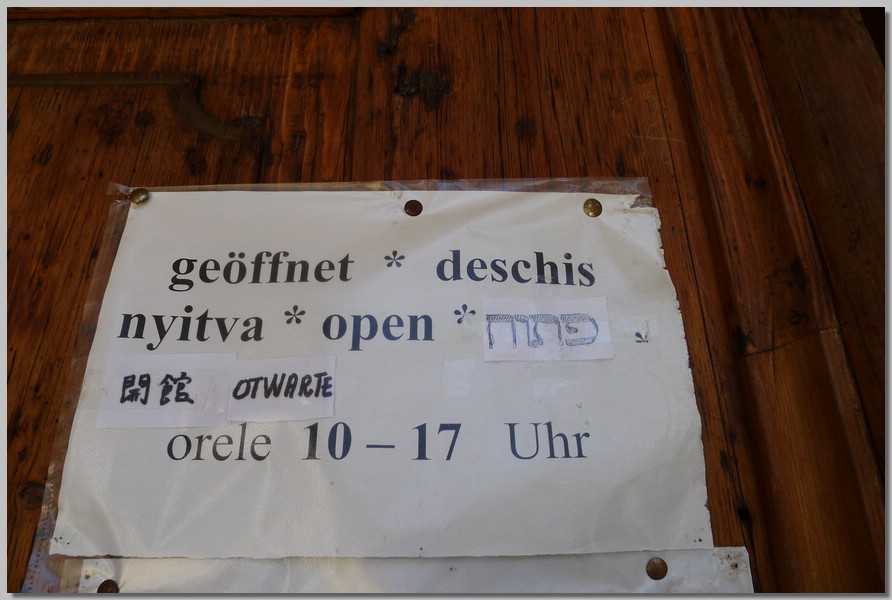 geöffnet * deschis
nyitva * open * פתוח *
開館 OTWARTE
orele 10 – 17 Uhr